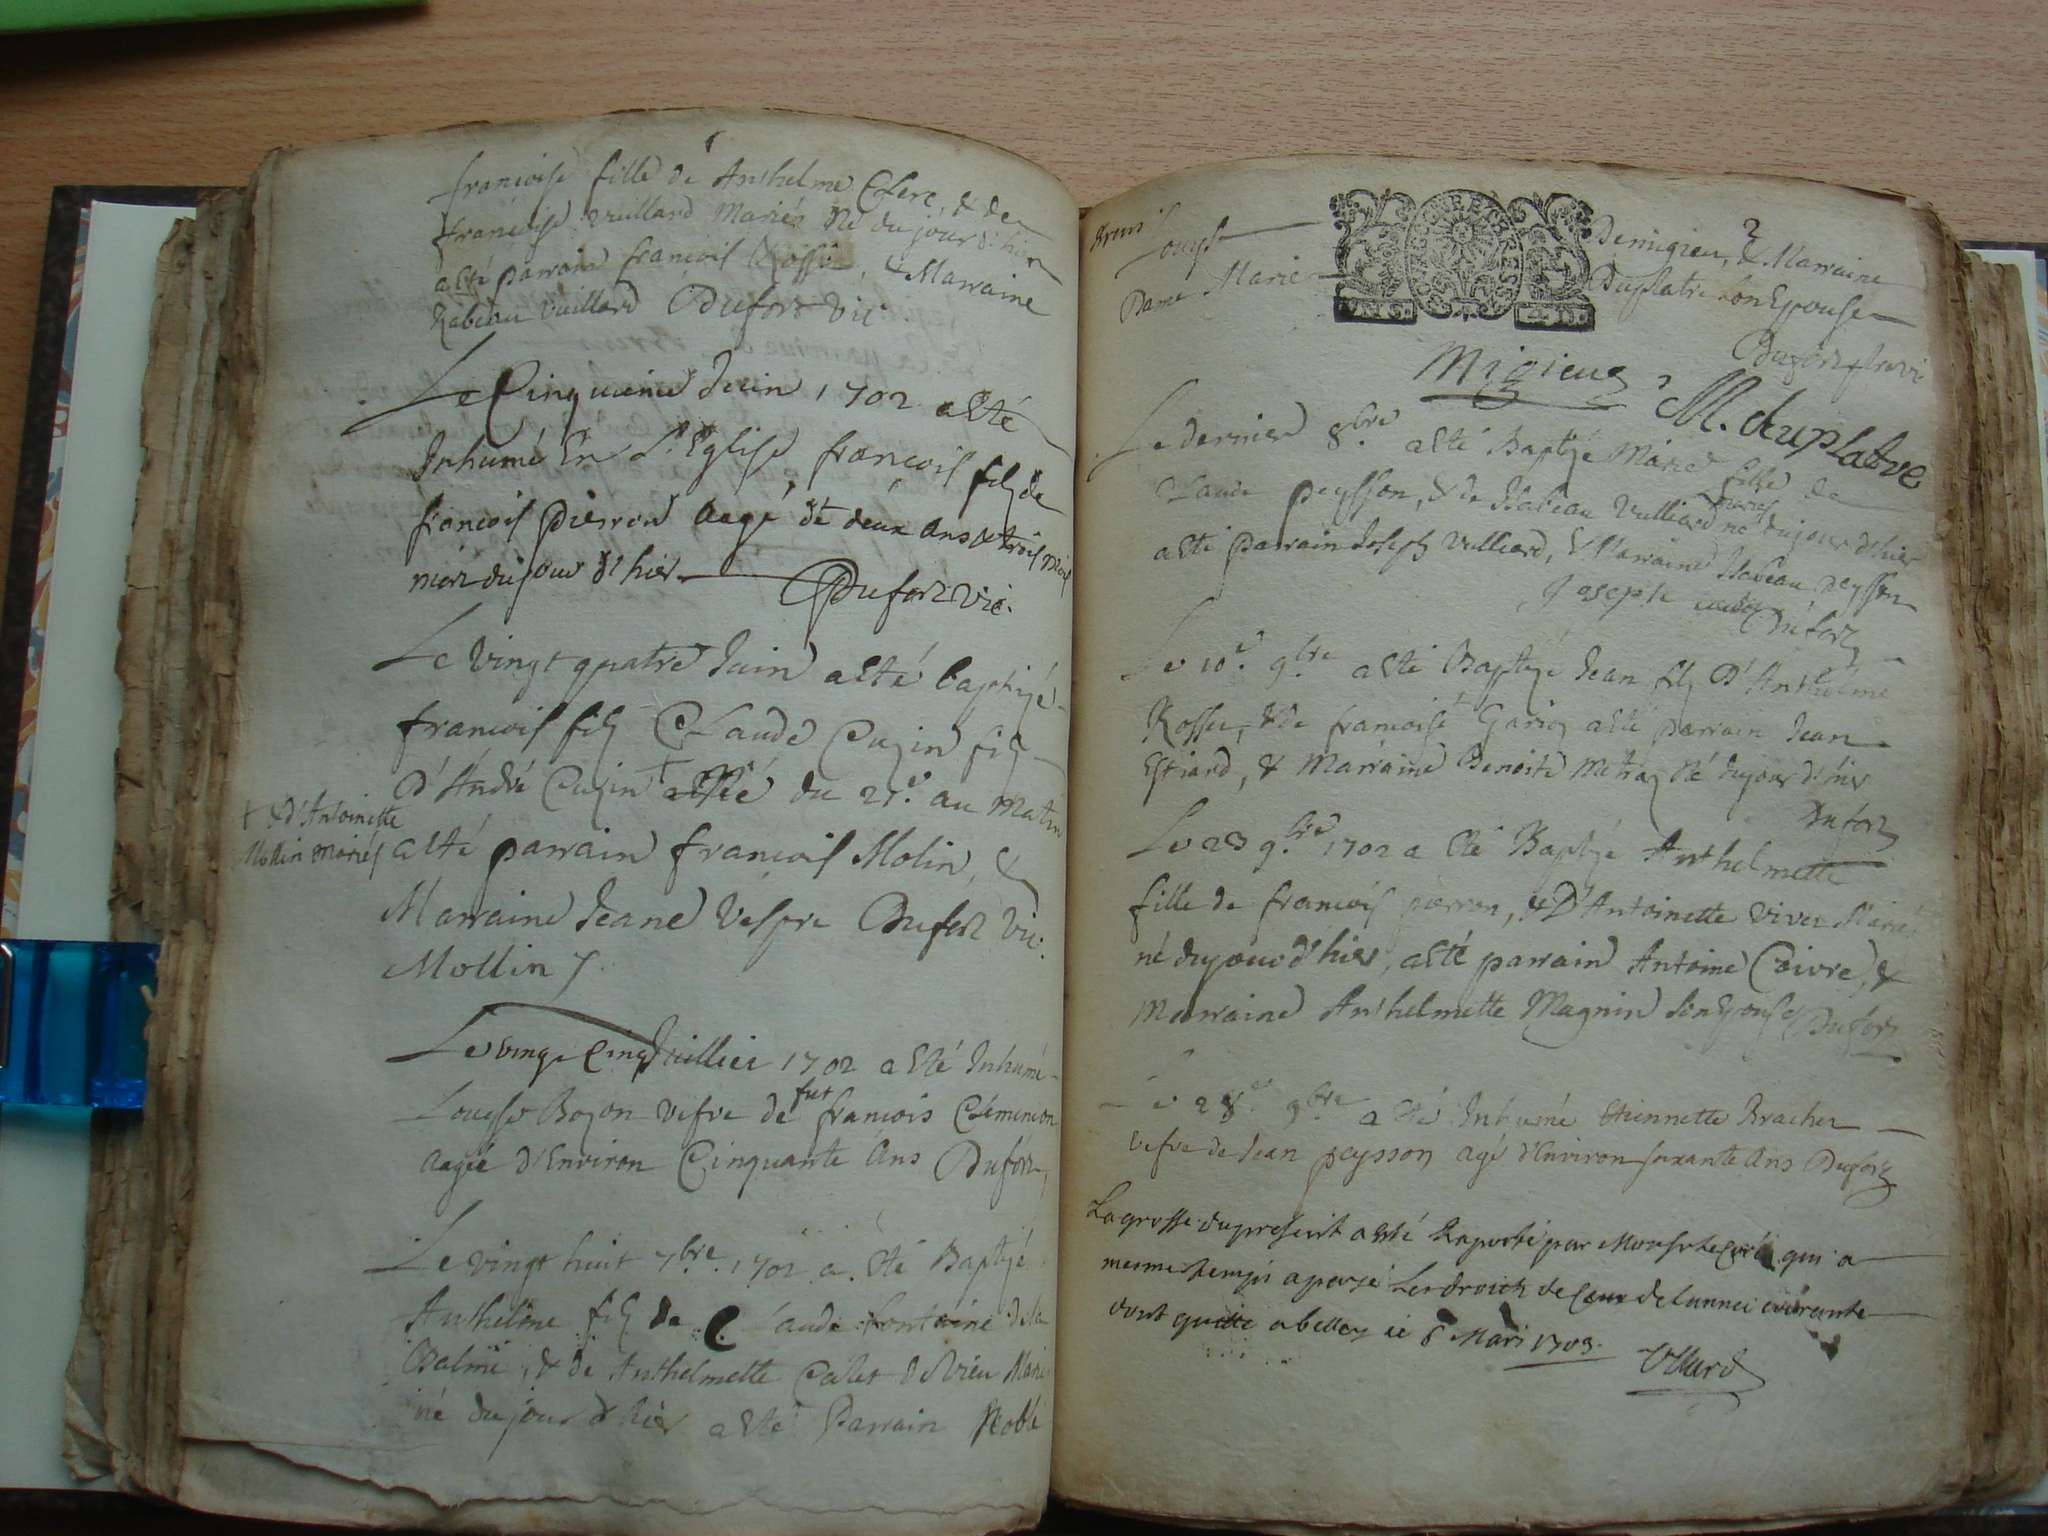 francoise fille de Anthelme Clerc, & de
francoise vuillard Mariés Né du jour d'hier
a été parrain francois Rossi, & Marraine
Vuillard Dufort Vic
Le Cinquieme Juin 1702 a Eté
Inhumé En L'Eglise, francois filz de
francois pierron Aagé de deux Ans & trois mois
mort du jour d'hier Dufort Vic.
Le vingt quatre Juin a Eté baptizé
francois filz Claude Cuzin filz
D'André Cuzin + du 21e au Matin
+ & d'Antoinette
Mollin mariés
a Eté parrain francois Molin, &
Marraine Jeane Vespre Dufort Vic.
Mollin
Le vingt Cinq Juillier 1702 a Eté Inhumé
Louyse Bozon vefve de fut francois Clemencon
aagée d'Environ Cinquante Ans Dufort
Le vingt huit 7bre 1702 a Eté Baptizé
Anthelme filz de Claude fontaine de la
Balme, & de Anthelmette Callet de vieu Mariés
né du jour d'hier a Eté Parrain Noble
Louys Demigieu, & Marraine
Dame Marie Duplatre son Epouse
Migieu M. duplatre
Le dernier 8bre a Eté Baptizé Marie fille de
Claude peysson, & de Isabeau Vulliard mariés né du jour d'hier
a Eté Parrain Joseph Vulliard, & Marraine Isabeau peysson
Joseph Dufort
Le 10e 9bre a Eté Baptizé Jean filz D'Anthelme
Rosset, & de francoise a Eté parrain Jean
& Marraine Benoite Né du jour d'hier
Dufort
Le 23 9bre 1702 a Eté Baptizé Anthelmette
fille de francois pierron, & D'Antoinette Mariés
né du jour d'hier, a Eté parrain Antoine &
Marraine Anthelmette Magnin son Epouse Dufort
Le 28e 9bre a Eté Inhumé Etiennette Bracher
vefve de Jean peysson agé d'Environ soixante Ans Dufort
La grosse du present a esté Raporté par qui a
mesme temps a paye Les droits de Ceux de lannee courante
dont quitte a belley ce 6 Mars 1703.